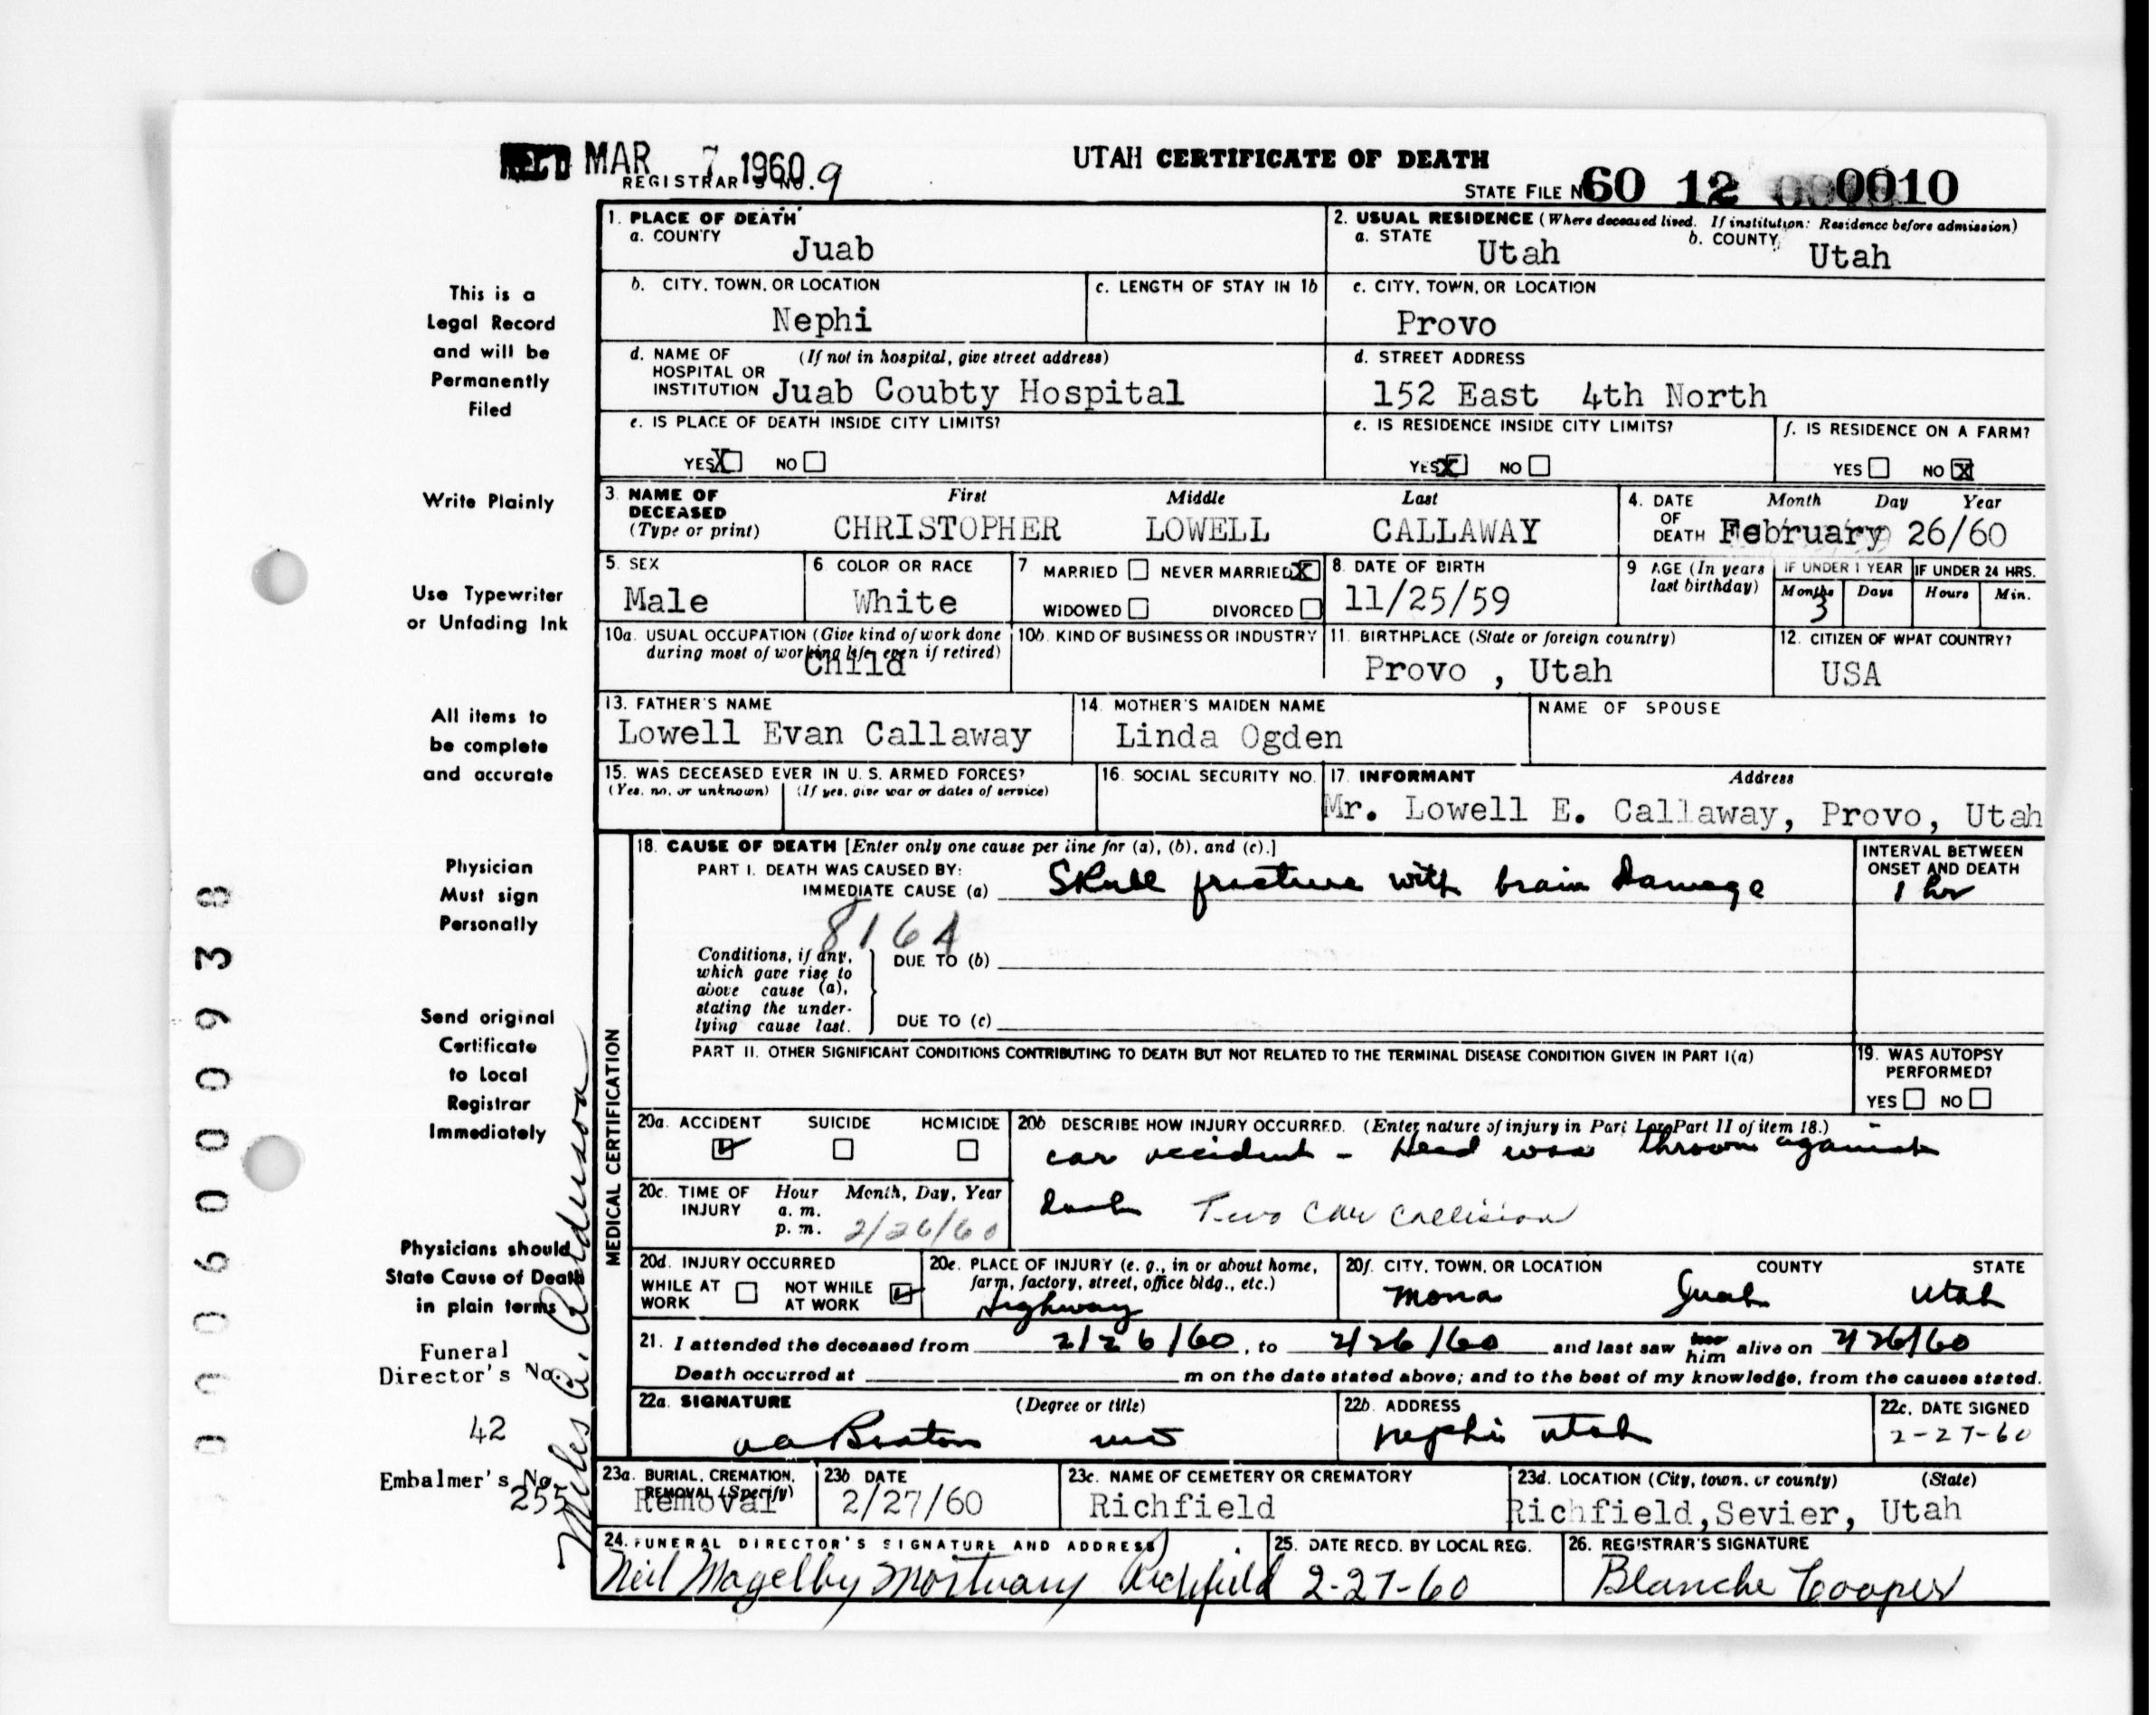 REC'D MAR 7 1960
REGISTRAR'S NO. 9
UTAH CERTIFICATE OF DEATH
STATE FILE NO. 60 12 0010
1. PLACE OF DEATH
a. COUNTY
Juab
2. USUAL RESIDENCE (Where deceased lived. If institution: Residence before admission)
a. STATE Utah
b. COUNTY Utah
b. CITY, TOWN, OR LOCATION
Nephi
c. LENGTH OF STAY IN 1b
c. CITY, TOWN, OR LOCATION
Provo
d. NAME OF HOSPITAL OR INSTITUTION (If not in hospital, give street address)
Juab Coubty Hospital
d. STREET ADDRESS
152 East 4th North
e. IS PLACE OF DEATH INSIDE CITY LIMITS?
YES X NO
e. IS RESIDENCE INSIDE CITY LIMITS?
YES X NO
f. IS RESIDENCE ON A FARM?
YES NO X
3. NAME OF DECEASED (Type or print)
First Middle Last
CHRISTOPHER LOWELL CALLAWAY
4. DATE OF DEATH
Month Day Year
February 26/60
5. SEX
Male
6. COLOR OR RACE
White
7 MARRIED NEVER MARRIED X
WIDOWED DIVORCED
8. DATE OF BIRTH
11/25/59
9 AGE (In years last birthday)
IF UNDER 1 YEAR
Months Days
3
IF UNDER 24 HRS.
Hours Min.
10a. USUAL OCCUPATION (Give kind of work done during most of working life, even if retired)
Child
10b. KIND OF BUSINESS OR INDUSTRY
11. BIRTHPLACE (State or foreign country)
Provo , Utah
12. CITIZEN OF WHAT COUNTRY?
USA
13. FATHER'S NAME
Lowell Evan Callaway
14. MOTHER'S MAIDEN NAME
Linda Ogden
NAME OF SPOUSE
15. WAS DECEASED EVER IN U. S. ARMED FORCES?
(Yes, no, or unknown) (If yes, give war or dates of service)
16. SOCIAL SECURITY NO.
17. INFORMANT Address
Mr. Lowell E. Callaway, Provo, Utah
MEDICAL CERTIFICATION
18. CAUSE OF DEATH [Enter only one cause per line for (a), (b), and (c).]
PART I. DEATH WAS CAUSED BY:
IMMEDIATE CAUSE (a) Skull fracture with brain damage
INTERVAL BETWEEN ONSET AND DEATH
1 hr
8164
Conditions, if any, which gave rise to above cause (a), stating the underlying cause last.
DUE TO (b)
DUE TO (c)
PART II. OTHER SIGNIFICANT CONDITIONS CONTRIBUTING TO DEATH BUT NOT RELATED TO THE TERMINAL DISEASE CONDITION GIVEN IN PART I(a)
19. WAS AUTOPSY PERFORMED?
YES NO
20a. ACCIDENT SUICIDE HOMICIDE
20b DESCRIBE HOW INJURY OCCURRED. (Enter nature of injury in Part I or Part II of item 18.)
car accident - Head was thrown against
dash Two Car Collision
20c. TIME OF INJURY
Hour Month, Day, Year
a. m.
p. m. 2/26/60
20d. INJURY OCCURRED
WHILE AT WORK NOT WHILE AT WORK
20e. PLACE OF INJURY (e. g., in or about home, farm, factory, street, office bldg., etc.)
Highway
20f. CITY, TOWN, OR LOCATION COUNTY STATE
Mona Juab Utah
21. I attended the deceased from 2/26/60, to 2/26/60 and last saw him alive on 2/26/60
Death occurred at m on the date stated above; and to the best of my knowledge, from the causes stated.
22a. SIGNATURE (Degree or title)
MD
22b. ADDRESS
Nephi Utah
22c. DATE SIGNED
2-27-60
23a. BURIAL, CREMATION, REMOVAL (Specify)
Removal
23b DATE
2/27/60
23c. NAME OF CEMETERY OR CREMATORY
Richfield
23d. LOCATION (City, town, or county) (State)
Richfield,Sevier, Utah
24. FUNERAL DIRECTOR'S SIGNATURE AND ADDRESS
Neil Magelby Mortuary Richfield
25. DATE RECD. BY LOCAL REG.
2-27-60
26. REGISTRAR'S SIGNATURE
Blanche Cooper
This is a
Legal Record
and will be
Permanently
Filed
Write Plainly
Use Typewriter
or Unfading Ink
All items to
be complete
and accurate
Physician
Must sign
Personally
Send original
Certificate
to Local
Registrar
Immediately
Physicians should
State Cause of Death
in plain terms
Funeral
Director's No
42
Embalmer's No
255
Miles A. Anderson
000600938